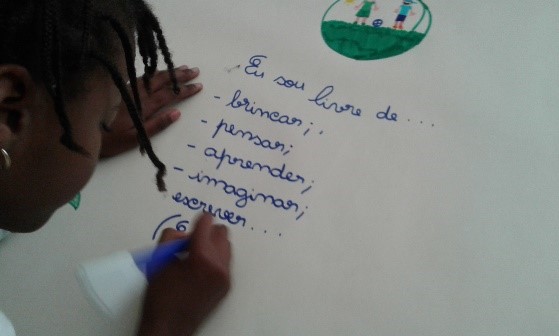 Eu sou livre de...
- brincar;
- pensar;
- aprender;
- imaginar;
escrever...
(6